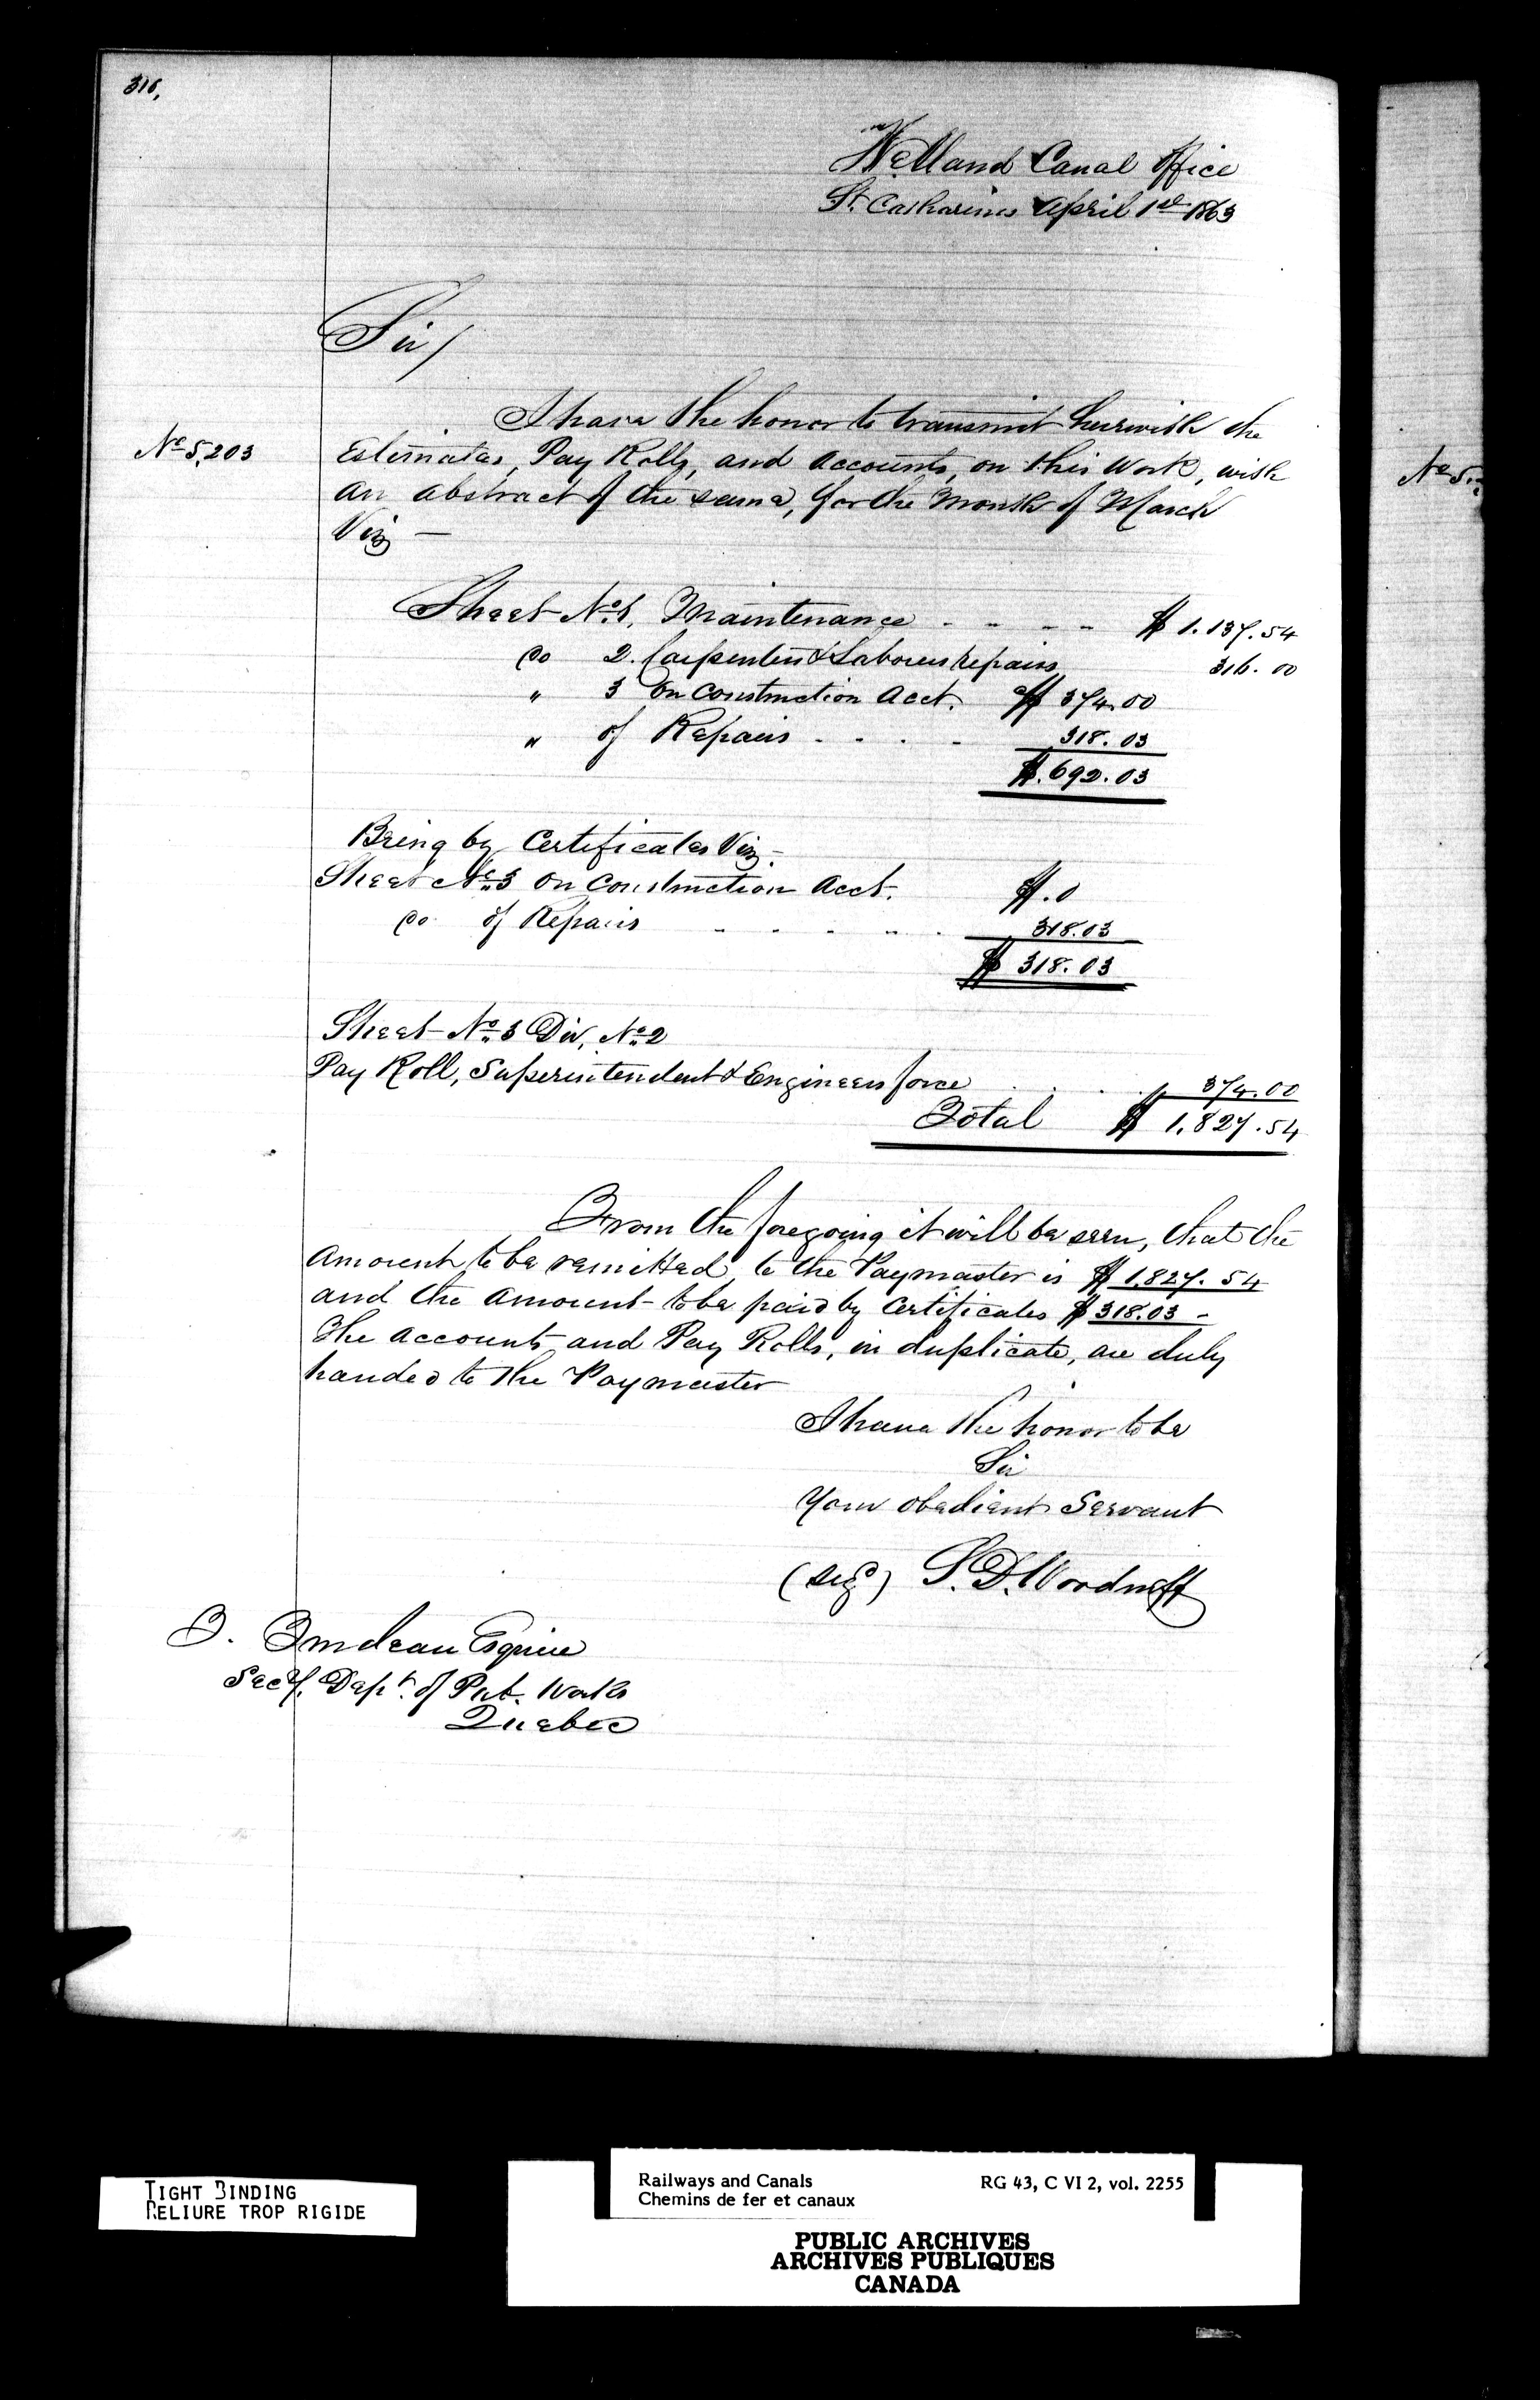 316,
Welland Canal Office
St. Catharines April 1st 1863
Sir/
No 5,203
I have the honor to transmit herewith the
Estimates, Pay Rolls, and Accounts, on this Work, with
an abstract of the same, for the Month of March
Viz —
Sheet No. 1. Maintenance - - - - $ 1.137.54
Do 2. Carpenters & Laborers repairs 316.00
" 3 On Construction Acct. $ 374.00
" of Repairs - - - - 318.03
$.692.03
Being by Certificates Viz.-
Sheet No. 3 On Construction Acct. $.0
Do of Repairs - - - - - 318.03
$ 318.03
Sheet No. 3 Div. No. 2
Pay Roll, Superintendent & Engineers force . . . . 374.00
Total $ 1,827.54
From the foregoing it will be seen, that the
amount to be remitted to the Paymaster is $ 1,827.54
and the amount to be paid by Certificates $ 318.03 -
The Accounts and Pay Rolls, in duplicate, are duly
handed to the Paymaster
I have the honor to be
Sir
Your obedient Servant
(Sigd) S. D. Woodruff
T. Trudeau Esquire
Secy. Dept. of Pub. Works
Quebec
No 5.
TIGHT BINDING
RELIURE TROP RIGIDE
Railways and Canals RG 43, C VI 2, vol. 2255
Chemins de fer et canaux
PUBLIC ARCHIVES
ARCHIVES PUBLIQUES
CANADA